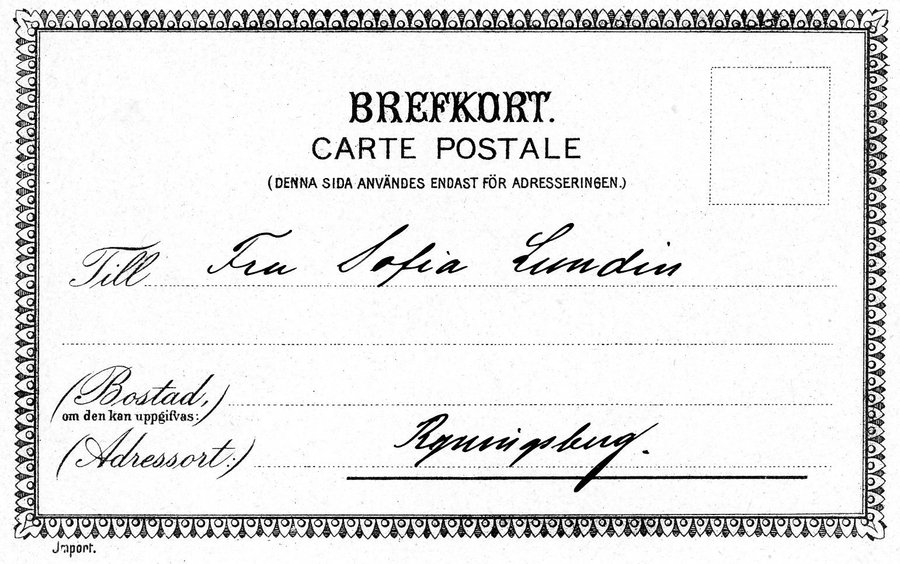 BREFKORT.
CARTE POSTALE
(DENNA SIDA ANVÄNDES ENDAST FÖR ADRESSERINGEN.)
Till Fru Sofia Lundin
(Bostad,
om den kan uppgifvas:)
(Adressort:) Ryningsberg.
Import.